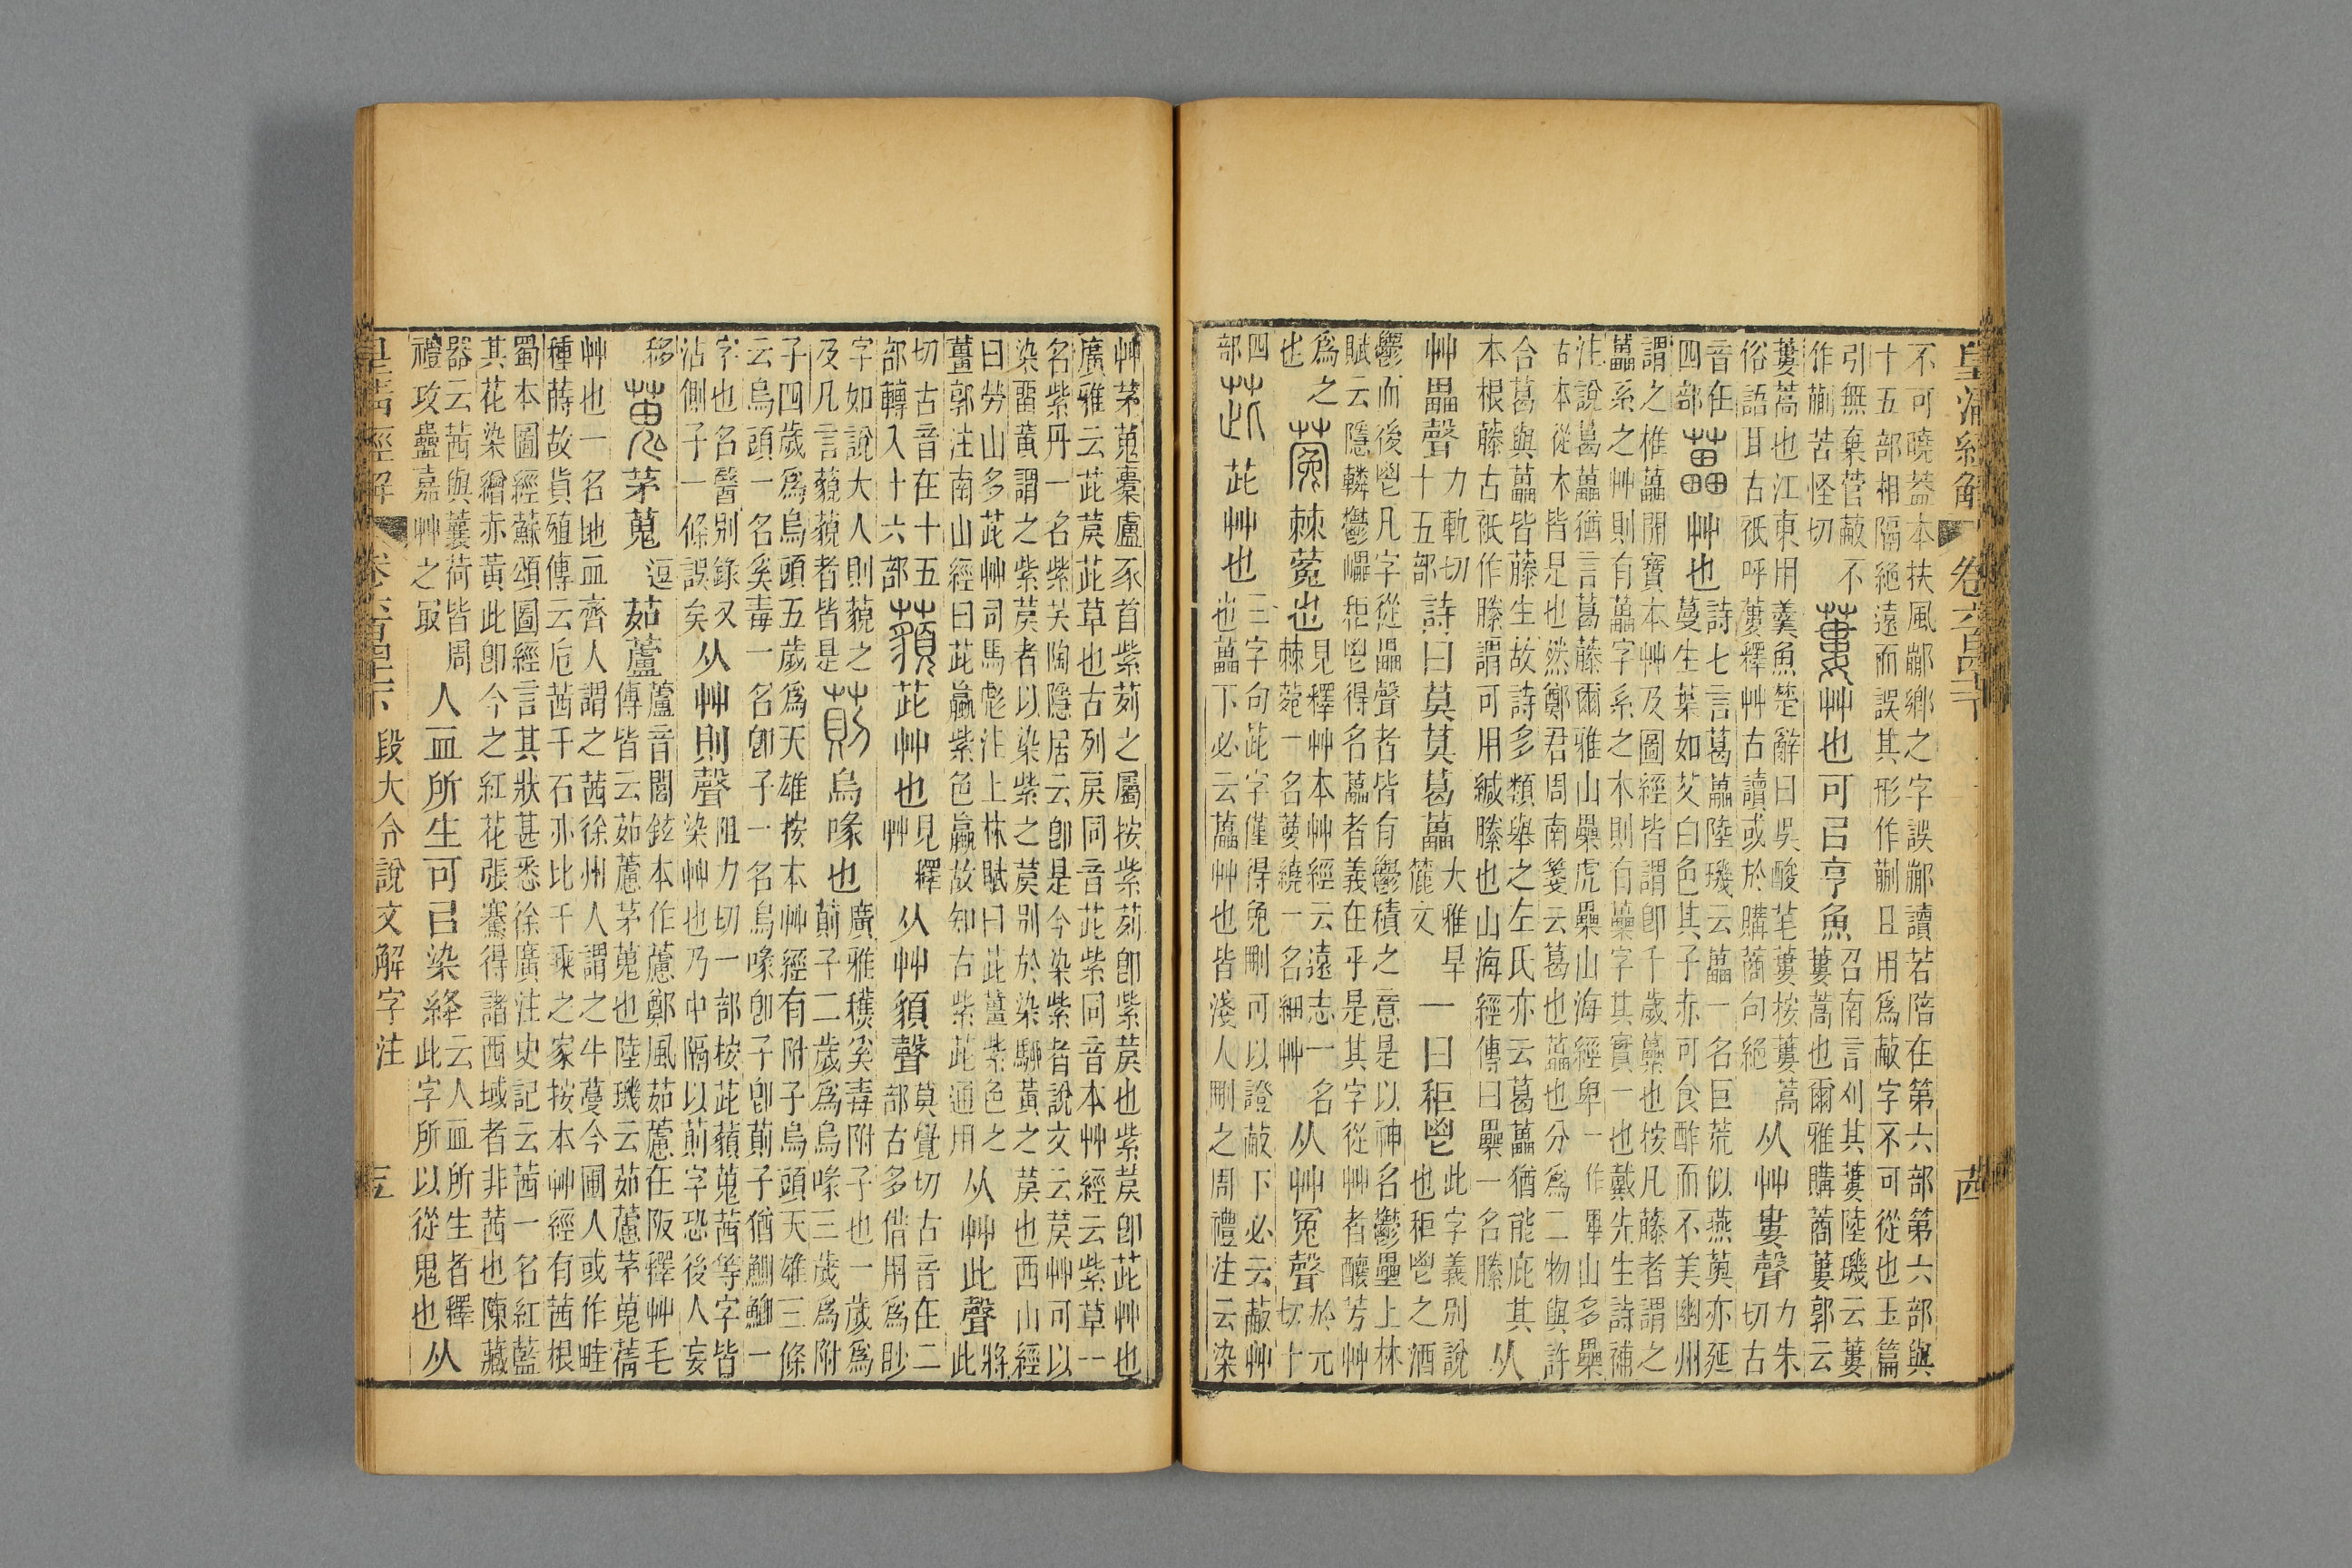 皇清經解 卷六百四十一
不可曉葢本扶風鄘鄉之字誤鄘讀若陪在第六部第六部與
十五部相隔絕遠而誤其形作蒯且用爲蔽字不可從也玉篇
引無棄菅蔽不
作蒯苦怪切
蔞
艸也可㠯亨魚
召南言刈其蔞陸璣云蔞
蔞蒿也爾雅購蔏蔞郭云
蔞蒿也江東用羹魚楚辭曰吳酸芼蔞按蔞蒿
俗語耳古衹呼蔞釋艸古讀或於購蔏句絕
从艸婁聲
力朱
切古
音在
四部
藟
艸也
詩七言葛藟陸璣云藟一名巨荒似燕薁亦延
蔓生葉如艾白色其子赤可食酢而不美幽州
謂之椎藟開寶本艸及圖經皆謂卽千歲虆也按凡藤者謂之
藟系之艸則有藟字系之木則有虆字其實一也戴先生詩補
注說葛藟猶言葛藤爾雅山櫐虎櫐山海經卑一作畢山多櫐
古本從木皆是也然鄭君周南箋云葛也藟也分爲二物與許
合葛與藟皆藤生故詩多類舉之左氏亦云葛藟猶能庇其
本根藤古衹作縢謂可用緘縢也山海經傳曰櫐一名縢
从
艸畾聲
力軌切
十五部
詩曰莫莫葛藟
大雅旱
麓文
一曰秬鬯
此字義別說
也秬鬯之酒
鬱而後鬯凡字從畾聲者皆有鬱積之意是以神名鬱壘上林
賦云隱轔鬱㠥秬鬯得名藟者義在乎是其字從艸者釀芳艸
爲之
也
蒬
棘蒬也
見釋艸本艸經云遠志一名
棘菀一名葽繞一名細艸
从艸冤聲
於元
切十
四
部
茈
茈艸也
三字句茈字僅得免刪可以證蔽下必云蔽艸
也藟下必云藟艸也皆淺人刪之周禮注云染
艸茅蒐橐盧豕首紫茢之屬按紫茢卽紫莀也紫莀卽茈艸也
廣雅云茈莀茈草也古列戾同音茈紫同音本艸經云紫草一
名紫丹一名紫芺陶隱居云卽是今染紫者說文云莀艸可以
染畱黃謂之紫莀者以染紫之莀別於染騮黃之莀也西山經
曰勞山多茈艸司馬彪注上林賦曰茈薑紫色之
薑郭注南山經曰茈蠃紫色蠃故知古紫茈通用
从艸此聲
將此
切古音在十五
部轉入十六部
藐
茈艸也
見釋
艸
从艸貌聲
莫覺切古音在二
部古多借用爲眇
字如說大人則藐之
及凡言藐藐者皆是
萴
烏喙也
廣雅䕯奚毒附子也一歲爲
萴子二歲爲烏喙三歲爲附
子四歲爲烏頭五歲爲天雄按本艸經有附子烏頭天雄三條
云烏頭一名奚毒一名卽子一名烏喙卽子卽萴子猶鰂鯽一
字也名醫別錄又
沾側子一條誤矣
从艸則聲
阻力切一部按茈藐蒐茜等字皆
染艸也乃中隔以萴字恐後人妄
移
蒐
茅蒐
逗
茹藘
藘音閭鉉本作藘鄭風茹藘在阪釋艸毛
傳皆云茹藘茅蒐也陸璣云茹藘茅蒐蒨
艸也一名地血齊人謂之茜徐州人謂之牛蔓今圃人或作畦
種蒔故貨殖傳云卮茜千石亦比千乘之家按本艸經有茜根
蜀本圖經蘇頌圖經言其狀甚悉徐廣注史記云茜一名紅藍
其花染繒赤黃此卽今之紅花張騫得諸西域者非茜也陳藏
器云茜與蘘荷皆周
禮攻蠱嘉艸之最
人血所生可㠯染絳
云人血所生者釋
此字所以從鬼也
从
皇清經解 卷六百四十一 段大令說文解字注